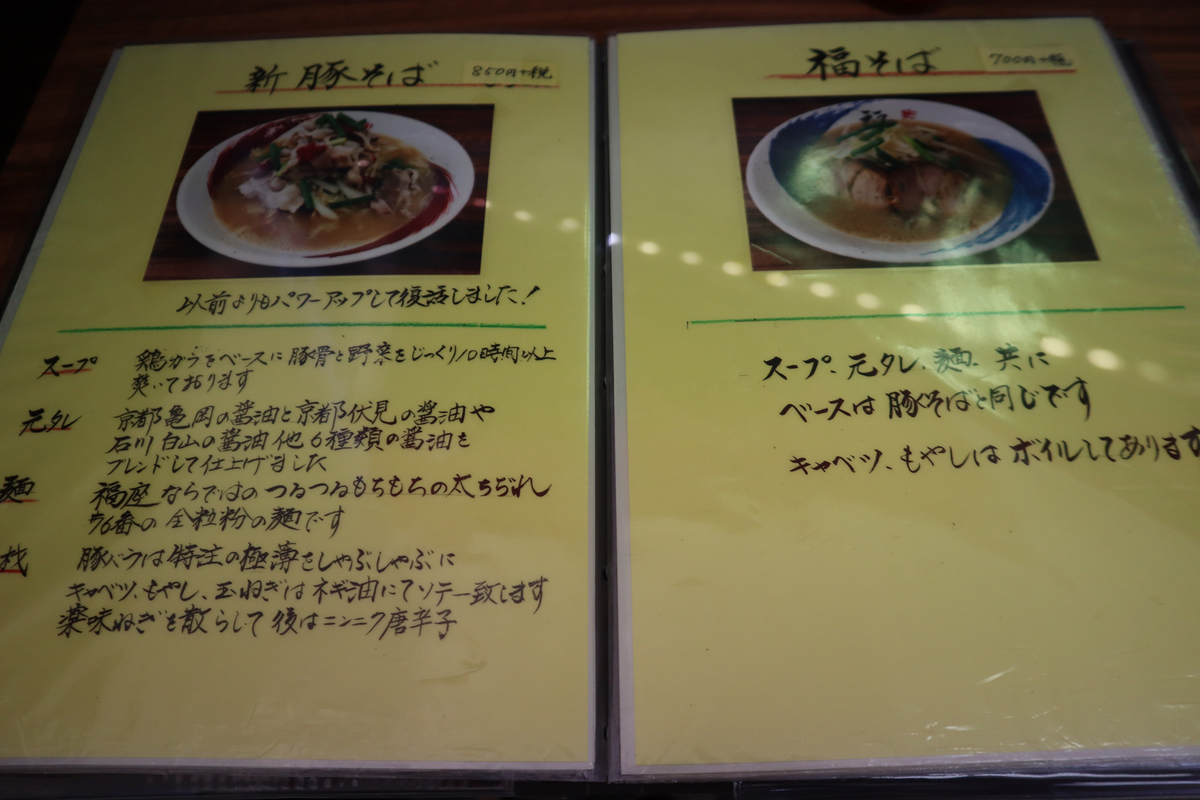 新豚そば 850円+税
以前よりもパワーアップして復活しました!
スープ 鶏がらをベースに豚骨と野菜をじっくり10時間以上
炊いております
元タレ 京都亀岡の醤油と京都伏見の醤油や
石川白山の醤油他6種類の醤油を
ブレンドして仕上げました
麺 福座ならではのつるつるもちもちの太ちぢれ
の全粒粉の麺です
材 豚バラは特注の極薄をしゃぶしゃぶに
キャベツ、もやし、玉ねぎはネギ油にてソテー致します
薬味ねぎを散らして後はニンニク唐辛子
福そば 700円+税
スープ、元タレ、麺、共に
ベースは豚そばと同じです
キャベツ、もやしはボイルしてあります